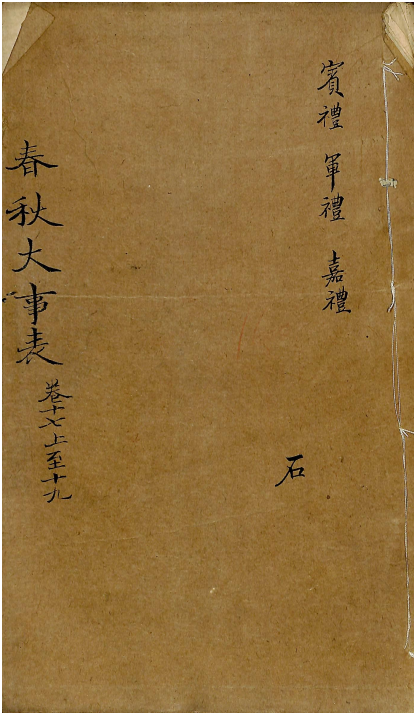 賓禮 軍禮 嘉禮
石
春秋大事表
卷十七上至十九